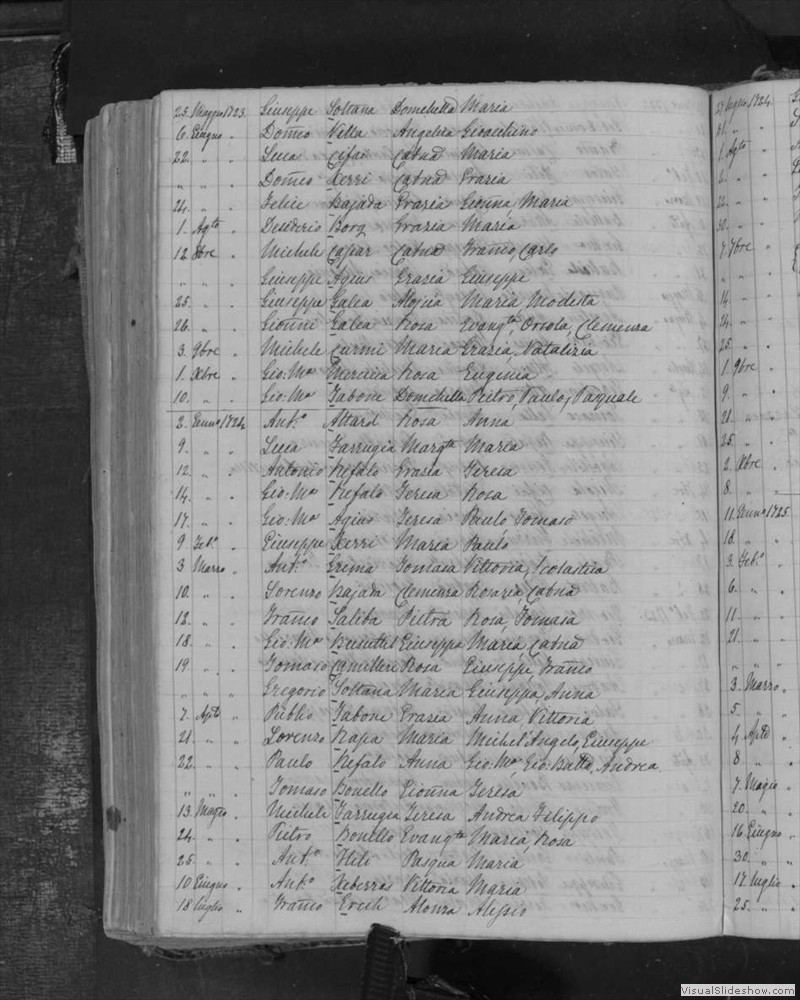 25. Maggio 1723. Giuseppe Soltana Domchella Maria
6. Giugno " Dom̃co Vella Angelica Gioachino
22. " " Luca Cifai Catnã Maria
" " " Dom̃co Xerri Catnã Grazia
24. " " Felice Bajada Grazia Gionna Maria
1. Agto " Desiderio Borg Grazia Maria
12. 8bre " Michele Caspar Catnã Franco, Carlo
" " " Giuseppe Agius Grazia Giuseppe
25. " " Giuseppe Galea Aloisia Maria Modesta
26. " " Gionni Galea Rosa Evangta, Orsola, Clemenza
3. 9bre " Michele Curmi Maria Grazia, Natalizia
1. Xbre " Gio: Ma Mercieca Rosa Eugenia
10. " " Gio: Ma Tabone Domchella Pietro, Paulo, Pasquale
2. Genno 1724. Anto Attard Rosa Anna
9. " " Luca Farrugia Margta Maria
12. " " Antonio Refalo Grazia Teresa
14. " " Gio: Ma Refalo Teresa Rosa
17. " " Gio: Ma Agius Teresa Paulo, Tomaso
9. Febo " Giuseppe Xerri Maria Paulo
3. Marzo " Anto Grima Tomasa Vittoria, Scolastica
10. " " Lorenzo Bajada Clemenza Rosaria, Catnã
12. " " Franco Saliba Pietra Rosa, Tomasa
18. " " Gio: Ma Busuttil Giuseppa Maria, Catnã
19. " " Tomaso Camilleri Rosa Giuseppe, Franco
" " " Gregorio Soltana Maria Giuseppa, Anna
7. Aple " Publio Tabone Grazia Anna Vittoria
21. " " Lorenzo Rapa Maria Michel'Angelo, Giuseppe
22. " " Paulo Refalo Anna Gio: Ma, Gio: Batta, Andrea
" " " Tomaso Bonello Gionna Teresa
13. Maggio " Michele Farrugia Teresa Andrea Filippo
24. " " Pietro Bonello Evangta Maria, Rosa
25. " " Anto Hili Pasqua Maria
10 Giugno " Anto Xiberras Vittoria Maria
18 luglio " Franco Ercili Alonza Alessio
27. luglio 1724.
31. " "
1. Agto "
2. " "
22. " "
30. " "
7. 7bre "
14. " "
24. " "
25. " "
1. 9bre "
9. " "
21. " "
25. " "
2. Xbre "
8. " "
11. Genno 1725.
18. " "
3. Febo "
6. " "
11. " "
21. " "
" " "
3. Marzo "
5. " "
4. Aple "
8 " "
7. Magio "
20. " "
16 Giugno "
30. " "
17. luglio "
25. " "
VisualSlideshow.com